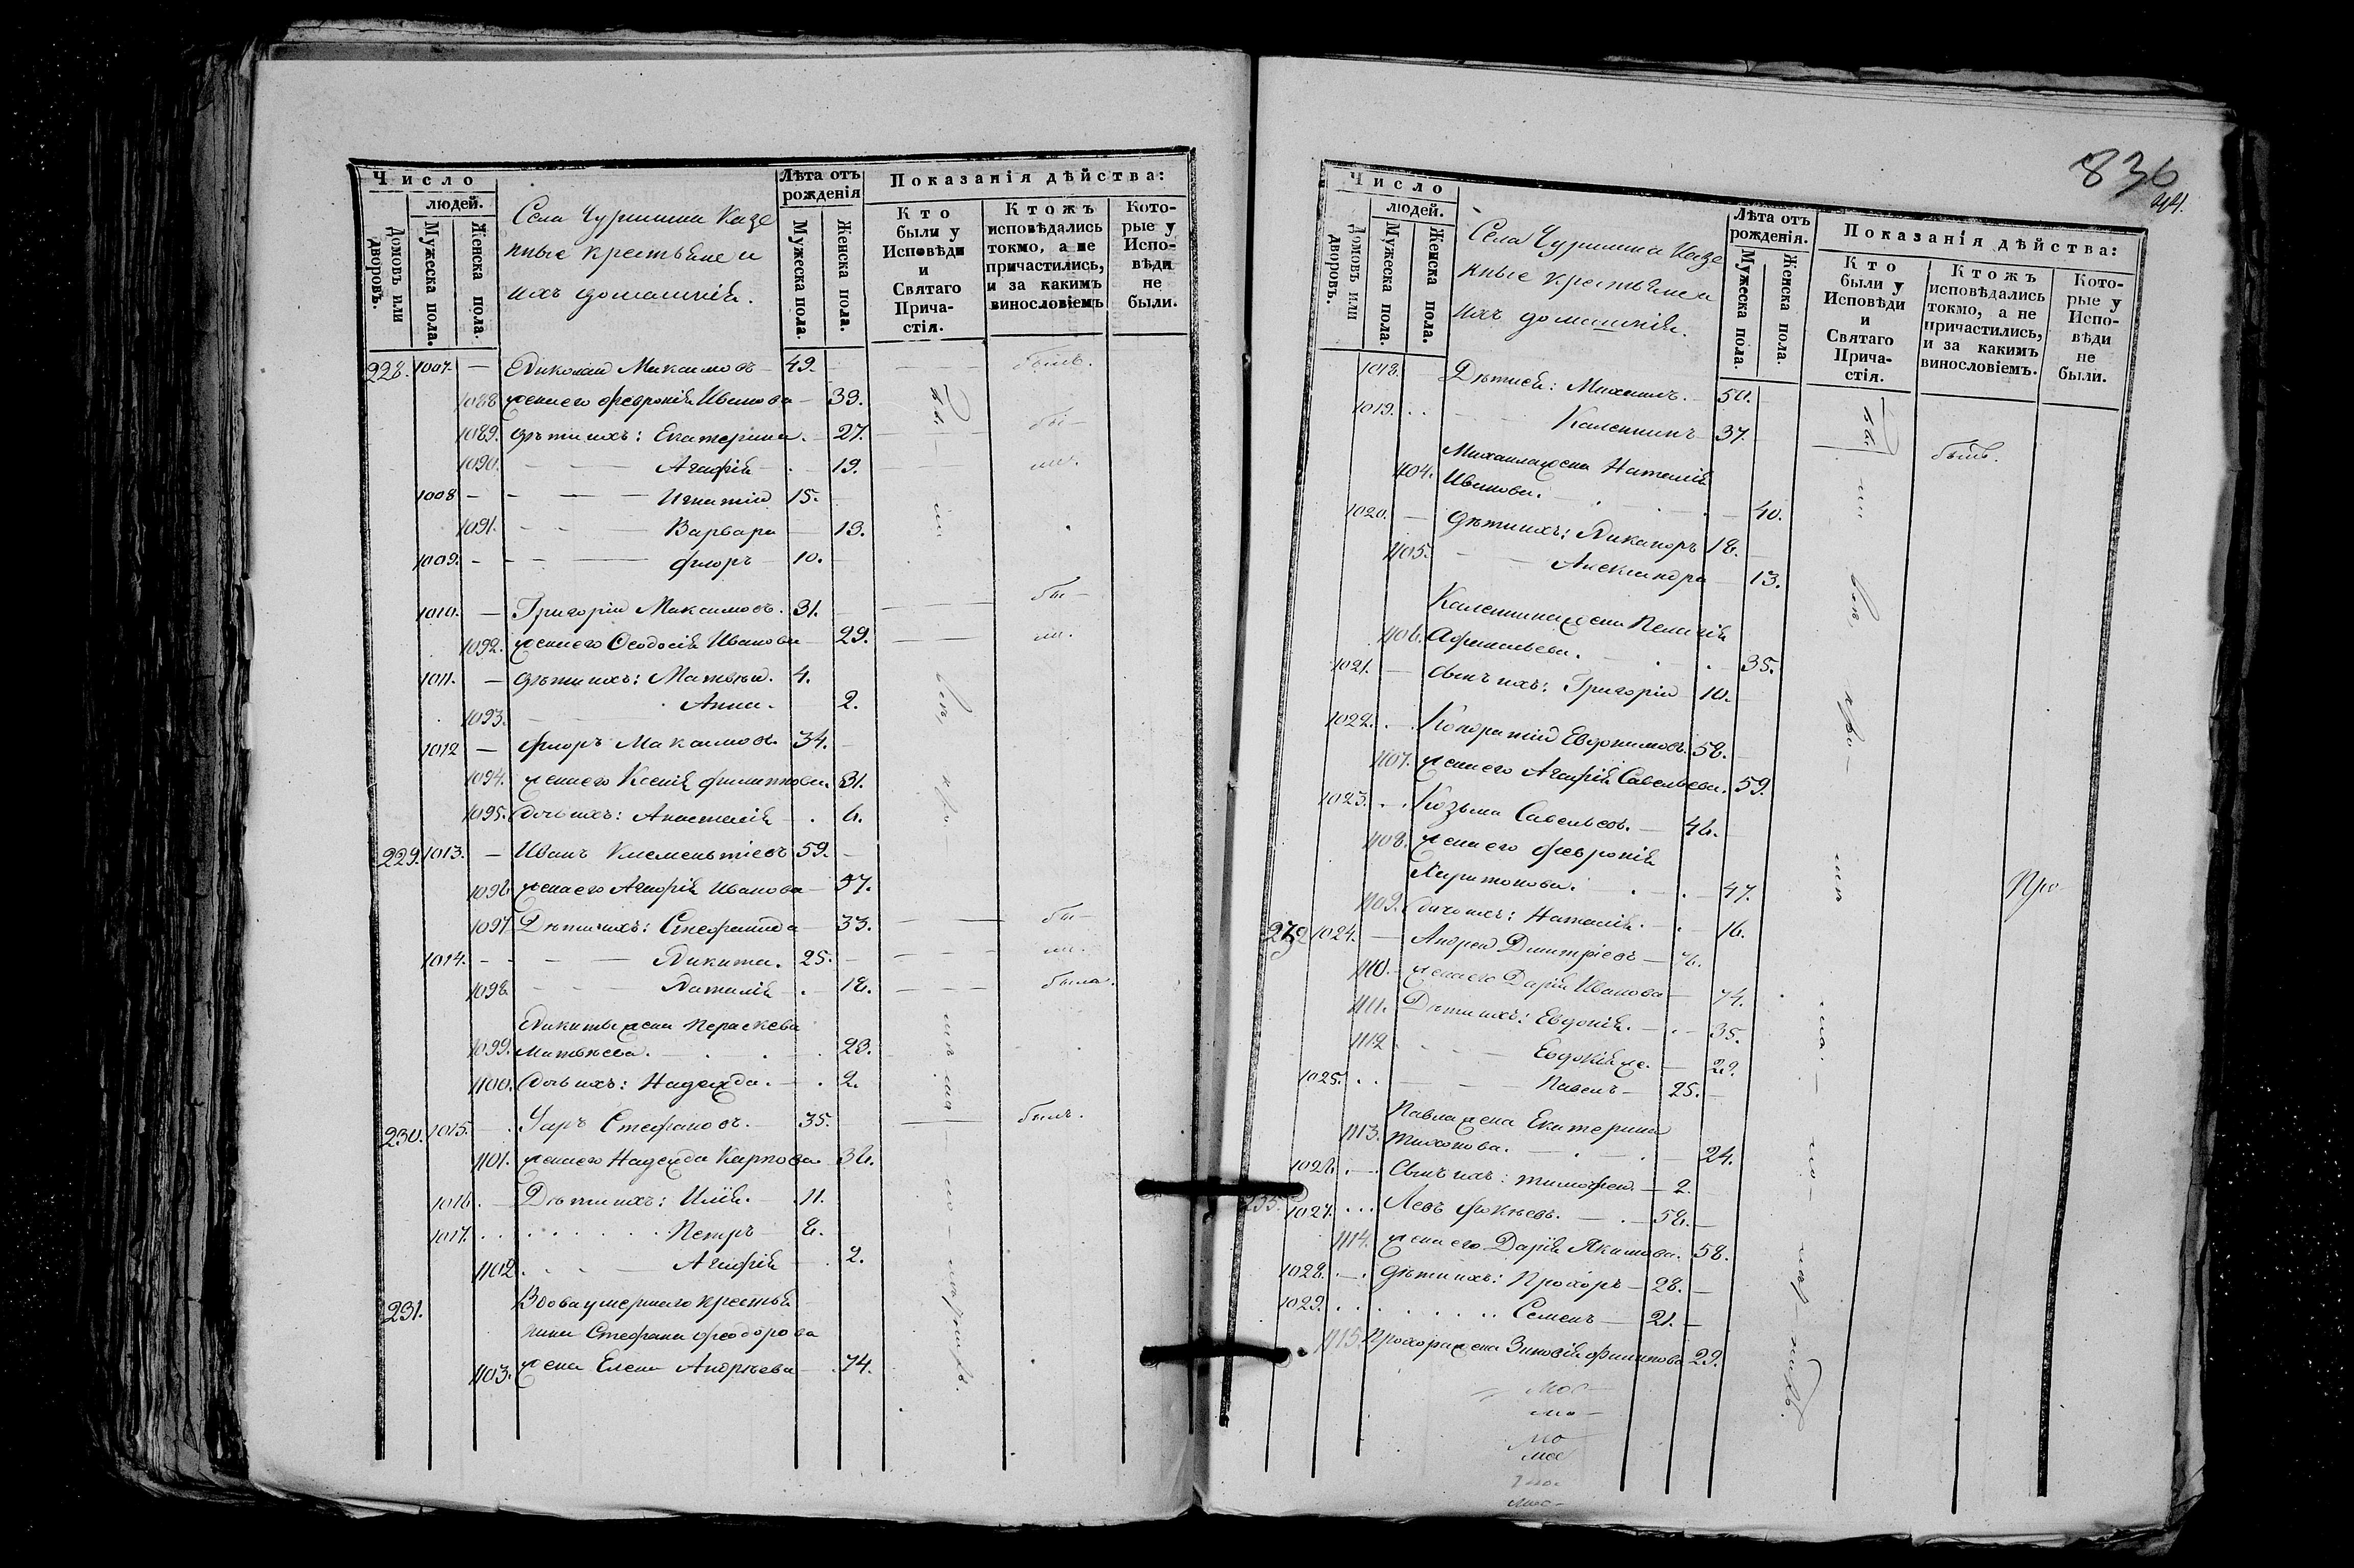 Число
людей.
Домовъ или дворовъ.
Мужеска пола.
Женска пола.
Села Чурилина Казе
нные крестьяне и
ихъ домашнія.
Лѣта отъ рожденія
Мужеска пола.
Женска пола.
Показанія дѣйства:
Кто были у Исповѣди и Святаго Прича-стія.
Ктожъ исповѣдались токмо, а не причастились, и за какимъ винословіемъ
Кото-рые у Испо-вѣди не были.
228. 1007. — Николай Максимовъ — 49. былъ.
1088 жена его Февронія Иванова — 39.
1089. дѣти ихъ: Екатерина. — 27. бы-
1090. Агафія — 19. ли.
1008 — Игнатій 15.
1091. Варвара — 13.
1009. — Флоръ 10.
1010. — Григорій Максимовъ. 31. бы-
1092. жена его Ѳеодосія Иванова — 29. ли.
1011. — дѣти ихъ: Матвѣй. 4.
1093. Анна. — 2.
1012 — Флоръ Максимовъ 34.
1094. жена его Ксенія Филиппова 31.
1095. Дочь ихъ: Анастасія — 6.
229. 1013. — Иванъ Клементіевъ 59.
1096 жена его Агафія Иванова — 57.
1097 Дѣти ихъ: Стефанида — 33. бы-
1014. — Никита. 25. ли.
1098 Наталія — 18. была.
Никиты жена Параскева
1099. Матвѣева. — 23.
1100. Дочь ихъ: Надежда. — 2.
230. 1015. Уаръ Стефановъ. 35. былъ.
1101. жена его Надежда Карпова 36.
1016. — Дѣти ихъ: Илія. — 11.
1017. Петръ 8.
1102 Агафія — 2.
231. Вдова умершаго крестья
нина Стефана Ѳеодорова
1103. жена Елена Андрѣева — 74.
836
Число
людей.
Домовъ или дворовъ.
Мужеска пола.
Женска пола.
Села Чурилина Казе
нные крестьяне и
ихъ домашнія.
Лѣта отъ рожденія.
Мужеска пола.
Женска пола.
Показанія дѣйства:
Кто были у Исповѣди и Святаго Прича-стія.
Ктожъ исповѣдались токмо, а не причастились, и за какимъ винословіемъ.
Кото-рые у Испо-вѣди не были.
1018. Дѣти ея: Михаилъ. — 50.
1019. Калинникъ — 37. былъ.
Михаила жена Наталія
1104. Иванова. — 40.
1020. — дѣти ихъ: Никаноръ 18.
1105. Александра — 13.
Калинника жена Пелагія
1106. Афанасьева. — 35.
1021. — сынъ ихъ: Григорій 10.
1022. — Кондратій Евдокимовъ. 58.
1107. жена его Агафія Савельева. 59.
1023. Козьма Савельевъ. — 46.
1108. жена его Февронія
Харитонова. — 47.
1109. Дочь ихъ: Наталія. — 16.
1024. — Андрей Димитріевъ —
1110. — жена его Дарія Иванова — 74.
1111. Дѣти ихъ: Евдокія. — 35.
1112 Евдокія — 22.
1025. Павелъ — 25.
Павла жена Екатерина
1113. Тихонова. — 24.
1026. Сынъ ихъ: Тимофей. — 2.
1027. Левъ Фокѣевъ. — 58.
1114. жена его Дарія Якимова. 58.
1028. дѣти ихъ: Прохоръ — 28.
1029. Семенъ — 21.
1115. Прохора жена Зиновія Филипова 29.